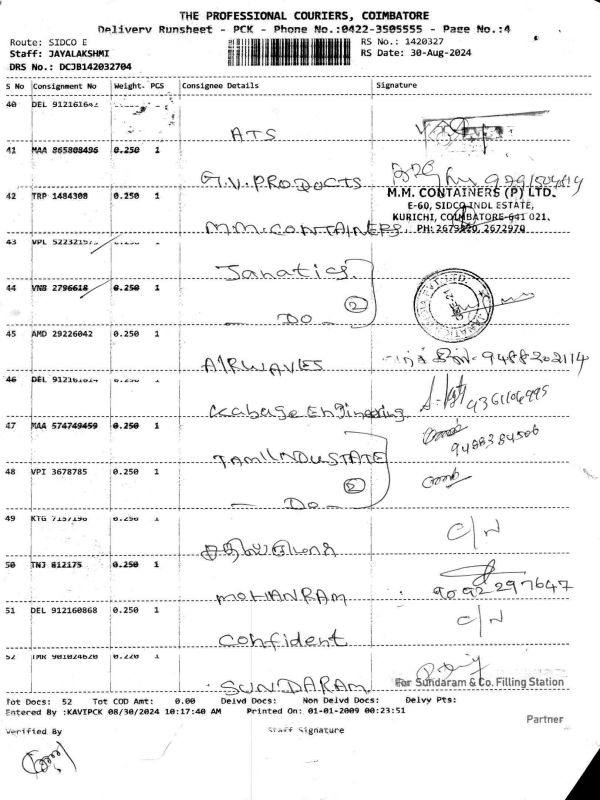 THE PROFESSIONAL COURIERS, COIMBATORE
Delivery Runsheet - PCK - Phone No.:0422-3505555 - Page No.:4
Route: SIDCO E
RS No.: 1420327
Staff: JAYALAKSHMI
RS Date: 30-Aug-2024
DRS No.: DCJB142032704
S No Consignment No Weight. PCS Consignee Details Signature
40 DEL 912161642
ATS
41 MAA 865808496 0.250 1
G.V. PRODUCTS
42 TRP 1484308 0.250 1
M.M. CONTAINERS (P) LTD.
E-60, SIDCO INDL ESTATE,
KURICHI, COIMBATORE-641 021.
PH: 2672970
M.M. CONTAINERS
43 VPL
Janatics
44 VNB 2796618 0.250 1
2
— Do —
45 AMD 29226042 0.250 1
AIRWAVES 9488202114
46 DEL 1
Kabage Engineering 9361106995
47 MAA 574749459 0.250 1
9488384506
TAMILNDUSTATE
48 VPI 3678785 0.250 1
2
— Do —
49 KTG 7157196 0.250 1
C/N
50 TNJ 812175 0.250 1
MOHANRAM 9092297647
51 DEL 912160868 0.250 1
Confident C/N
52 TMR 901024620 0.220 1
SUNDARAM For Sundaram & Co. Filling Station
Tot Docs: 52 Tot COD Amt: 0.00 Delvd Docs: Non Delvd Docs: Delvy Pts:
Entered By :KAVIPCK 08/30/2024 10:17:40 AM Printed On: 01-01-2009 00:23:51
Partner
Verified By Staff Signature